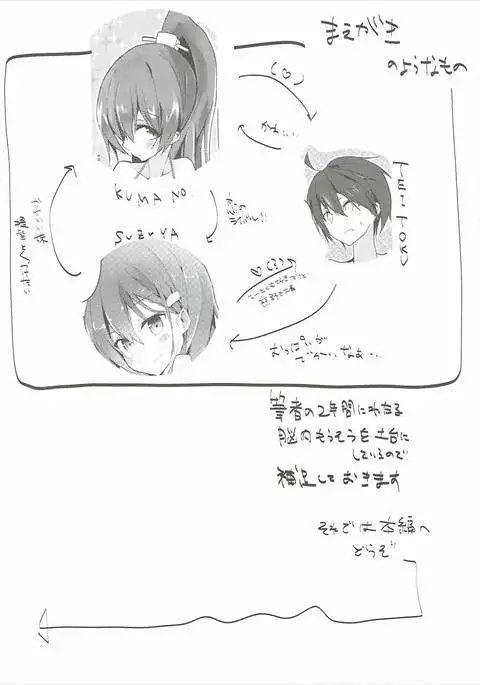 まえがき
のようなもの
かわいい…
KUMANO
TEITOKU
恋の
ライバル!!
SUZUYA
おっぱいが
でっかいなぁ…
筆者の2年間にわたる
脳内もうそうを土台に
しているので
補足しておきます
それでは本編へ
どうぞ